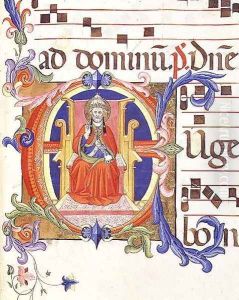 ad dominū. p̄. dñe
E Uge
bon